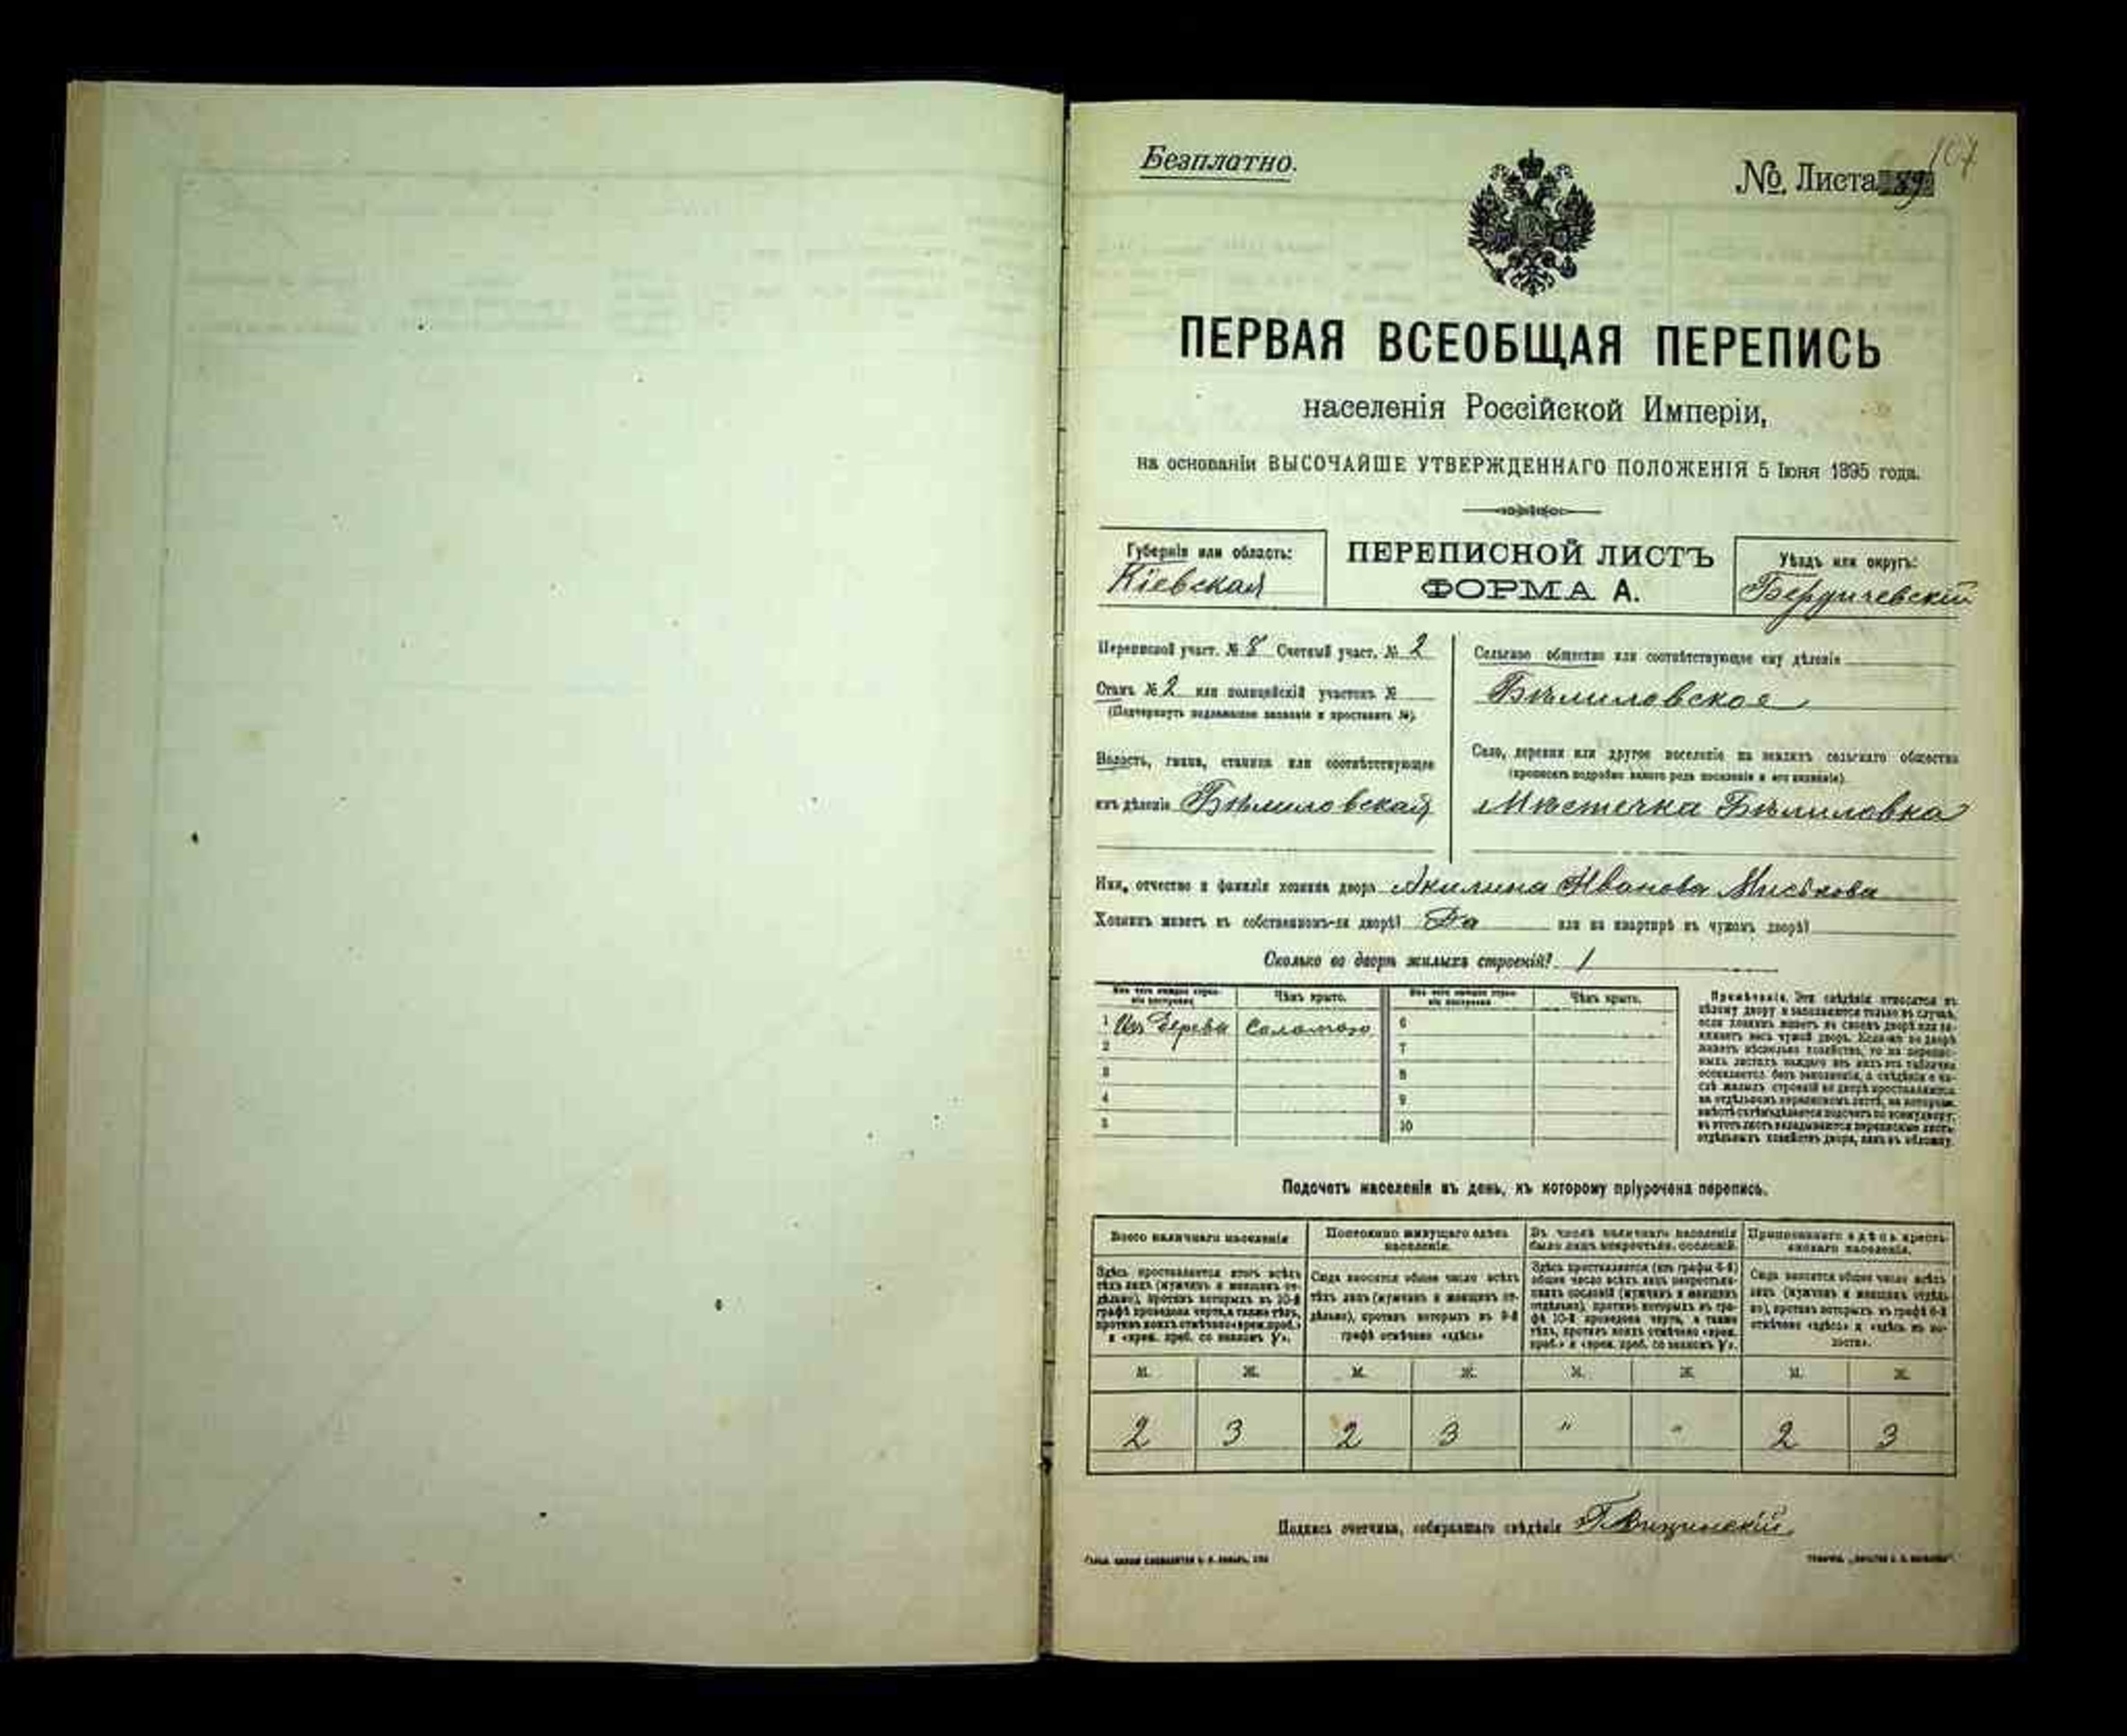 Безплатно.
№ Листа 89
107
ПЕРВАЯ ВСЕОБЩАЯ ПЕРЕПИСЬ
населенія Россійской Имперіи,
на основаніи ВЫСОЧАЙШЕ УТВЕРЖДЕННАГО ПОЛОЖЕНІЯ 5 Іюня 1895 года.
Губернія или область:
Кіевская
ПЕРЕПИСНОЙ ЛИСТЪ
ФОРМА А.
Уѣздъ или округъ:
Бердичевскій
Переписной участ. № 8 Счетный участ. № 2
Станъ № 2 или полицейскій участокъ №
(Подчеркнуть надлежащее названіе и проставить №).
Волость, гмина, станица или соотвѣтствующее
имъ дѣленіе Бѣлиловская
Сельское общество или соотвѣтствующее ему дѣленіе
Бѣлиловское
Село, деревня или другое поселеніе на земляхъ сельскаго общества
(прописать подробно какого рода поселеніе и его названіе).
Мѣстечка Бѣлиловка
Имя, отчество и фамилія хозяина двора Акилина Иванова
Хозяинъ живетъ въ собственномъ-ли дворѣ? Да или на квартирѣ въ чужомъ дворѣ?
Сколько во дворѣ жилыхъ строеній? 1
Изъ чего каждое строеніе построено Чѣмъ крыто. Изъ чего каждое строеніе построено Чѣмъ крыто.
1 Изъ дерева Соломою 6
2 7
3 8
4 9
5 10
Примѣчаніе. Эти свѣдѣнія относятся къ
цѣлому двору и заполняются только въ случаѣ,
если хозяинъ живетъ въ своемъ дворѣ или за-
нимаетъ весь чужой дворъ. Если-же во дворѣ
живетъ нѣсколько хозяйствъ, то на перепис-
ныхъ листахъ каждаго изъ нихъ эта табличка
оставляется безъ заполненія, а свѣдѣнія о чи-
слѣ жилыхъ строеній во дворѣ проставляются
на отдѣльномъ переписномъ листѣ, на которомъ
вмѣстѣ съ тѣмъ дѣлается подсчетъ по всему двору;
въ этотъ листъ вкладываются переписные листы
отдѣльныхъ хозяйствъ двора, какъ въ обложку.
Подсчетъ населенія въ день, къ которому пріурочена перепись.
Всего наличнаго населенія
Здѣсь проставляется итогъ всѣхъ
тѣхъ лицъ (мужчинъ и женщинъ от-
дѣльно), противъ которыхъ въ 10-й
графѣ проведена черта, а также тѣхъ,
противъ коихъ отмѣчено «врем. преб.»
и «врем. преб. со знакомъ V».
Постоянно живущаго здѣсь
населенія.
Сюда вносится общее число всѣхъ
тѣхъ лицъ (мужчинъ и женщинъ от-
дѣльно), противъ которыхъ въ 9-й
графѣ отмѣчено «здѣсь»
Въ числѣ наличнаго населенія
было лицъ некрестьян. сословій.
Здѣсь проставляется (изъ графы 4-й)
общее число всѣхъ лицъ некрестьян-
скихъ сословій (мужчинъ и женщинъ
отдѣльно), противъ которыхъ въ гра-
фѣ 10-й проведена черта, а также
тѣхъ, противъ коихъ отмѣчено «врем.
преб.» и «врем. преб. со знакомъ V».
Приписаннаго здѣсь кресть-
янскаго населенія.
Сюда вносится общее число всѣхъ
лицъ (мужчинъ и женщинъ отдѣль-
но), противъ которыхъ въ графѣ 8-й
отмѣчено «здѣсь» и «здѣсь въ во-
лости».
М. Ж. М. Ж. М. Ж. М. Ж.
2 3 2 3 " " 2 3
Подпись счетчика, собиравшаго свѣдѣнія